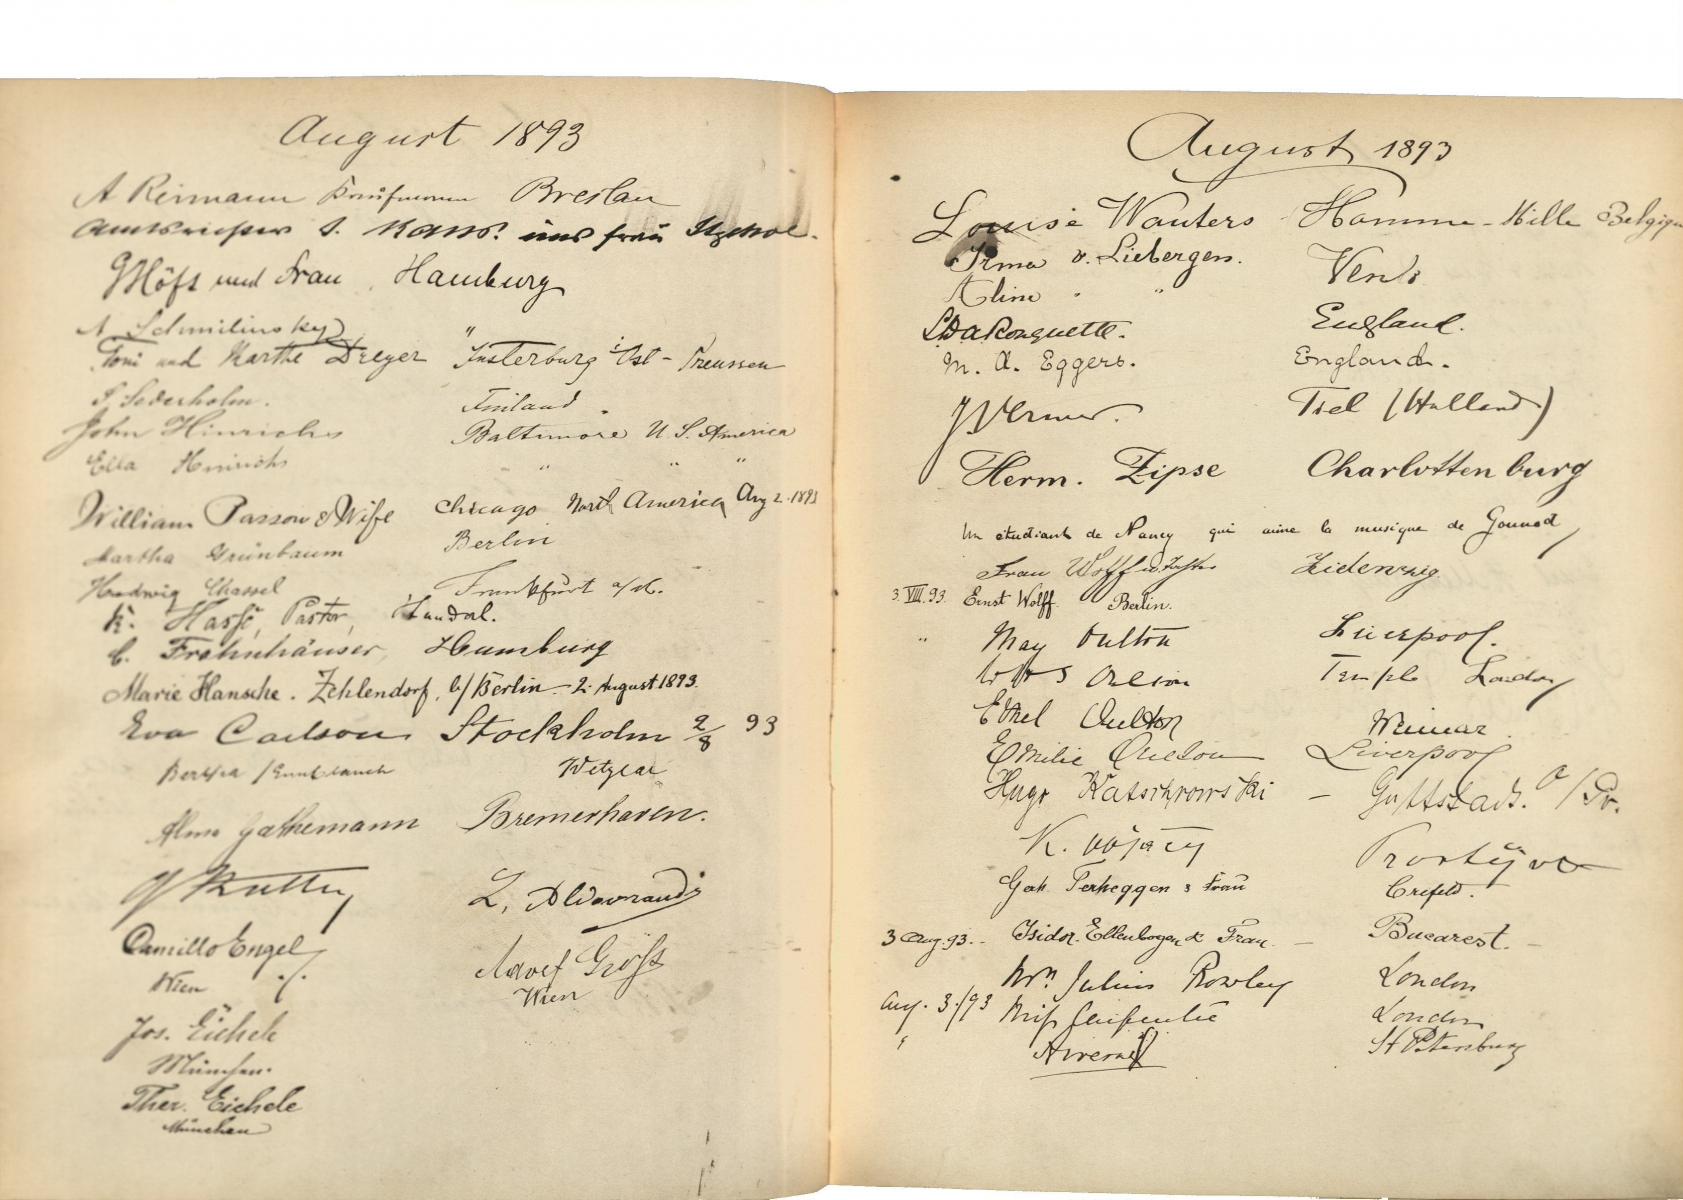 August 1893
A Reimann Kaufmann Breslau
Amtsrichter und Frau Itzehoe.
und Frau, Hamburg
A Schmilinsky "
Toni und Marthe Dreyer Insterburg i/Ost-Preussen
S. Sederholm. Finland.
John Hinrichs Baltimore U. S. America
Ella Hinrichs " " "
William Passow & Wife Chicago North America Aug 2. 1893
Martha Grünbaum Berlin
Hedwig Chassel Frankfurt a/M.
K. Hasse, Pastor,
C. Frahnhäuser, Hamburg
Marie Hansche. Zehlendorf, b/Berlin - 2. August 1893.
Eva Carlson Stockholm 2/8 93
Bertha Wetzlar
Alma Gathemann Bremerhaven.
L.
Camillo Engel
Wien
Adolf
Wien
Jos. Eichele
München.
Ther. Eichele
München
August 1893
Louise Wauters Hamme-Mille Belgique
Irma v. Liebergen. Venlo
Aline " "
England.
M. A. Eggers. England.
Tiel (Holland)
Herm. Zipse Charlottenburg
Un étudiant de Nancy qui aime la musique de Gounod
Frau Wolff u. Tochter
3. VIII. 93. Ernst Wolff. Berlin.
" May Oulton Liverpool.
Oulton Temple London
Ethel Oulton Weimar.
Emilie Oulton Liverpool
Hugo Katschrowski - Guttstadt. O/Pr.
K.
Terheggen & Frau Crefeld.
3 Aug. 93. - Isidor Ellenbogen & Frau. - Bucarest. -
Mrs. Julius Rowley London
Aug. 3./93 Miss London
" St Petersburg